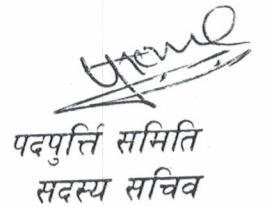 पदपुर्त्ति समिति
सदस्य सचिव